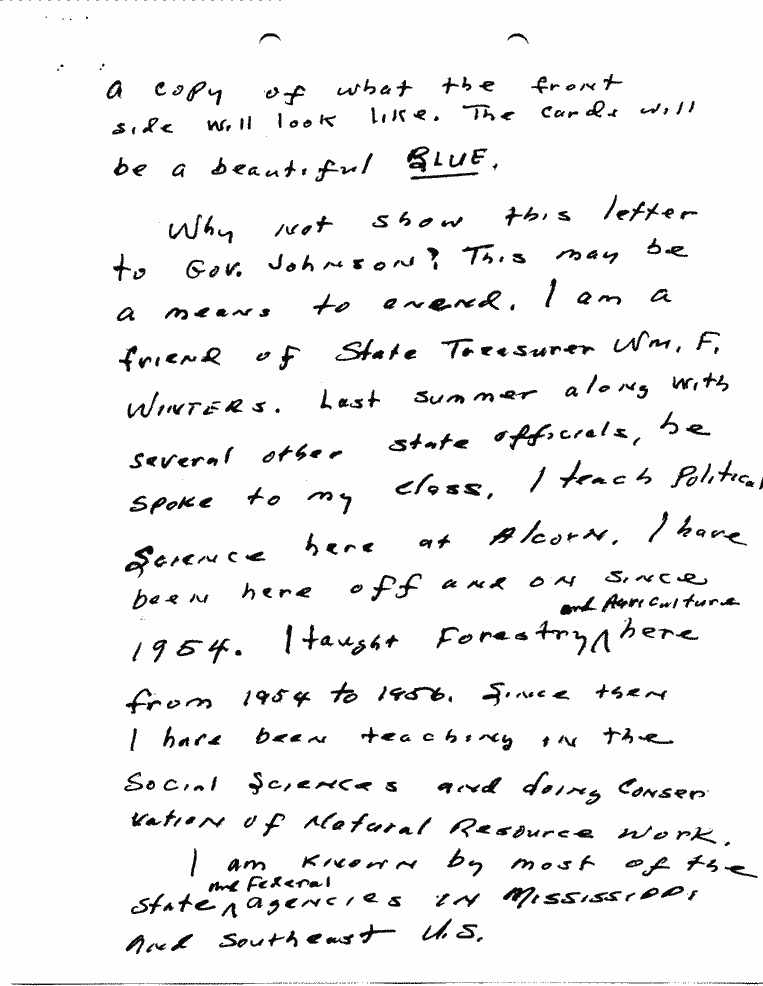 a copy of what the front
side will look like. The cards will
be a beautiful BLUE.
Why not show this letter
to Gov. Johnson? This may be
a means to an end. I am a
friend of State Treasurer Wm. F.
WINTERS. Last summer along with
several other state officials, he
spoke to my class. I teach Political
Science here at Alcorn. I have
been here off and on since
and Agriculture
1954. I taught Forestry ^ here
from 1954 to 1956. Since then
I have been teaching in the
Social Sciences and doing Conser
vation of Natural Resource Work.
I am known by most of the
and Federal
State ^ agencies in Mississippi
and Southeast U.S.